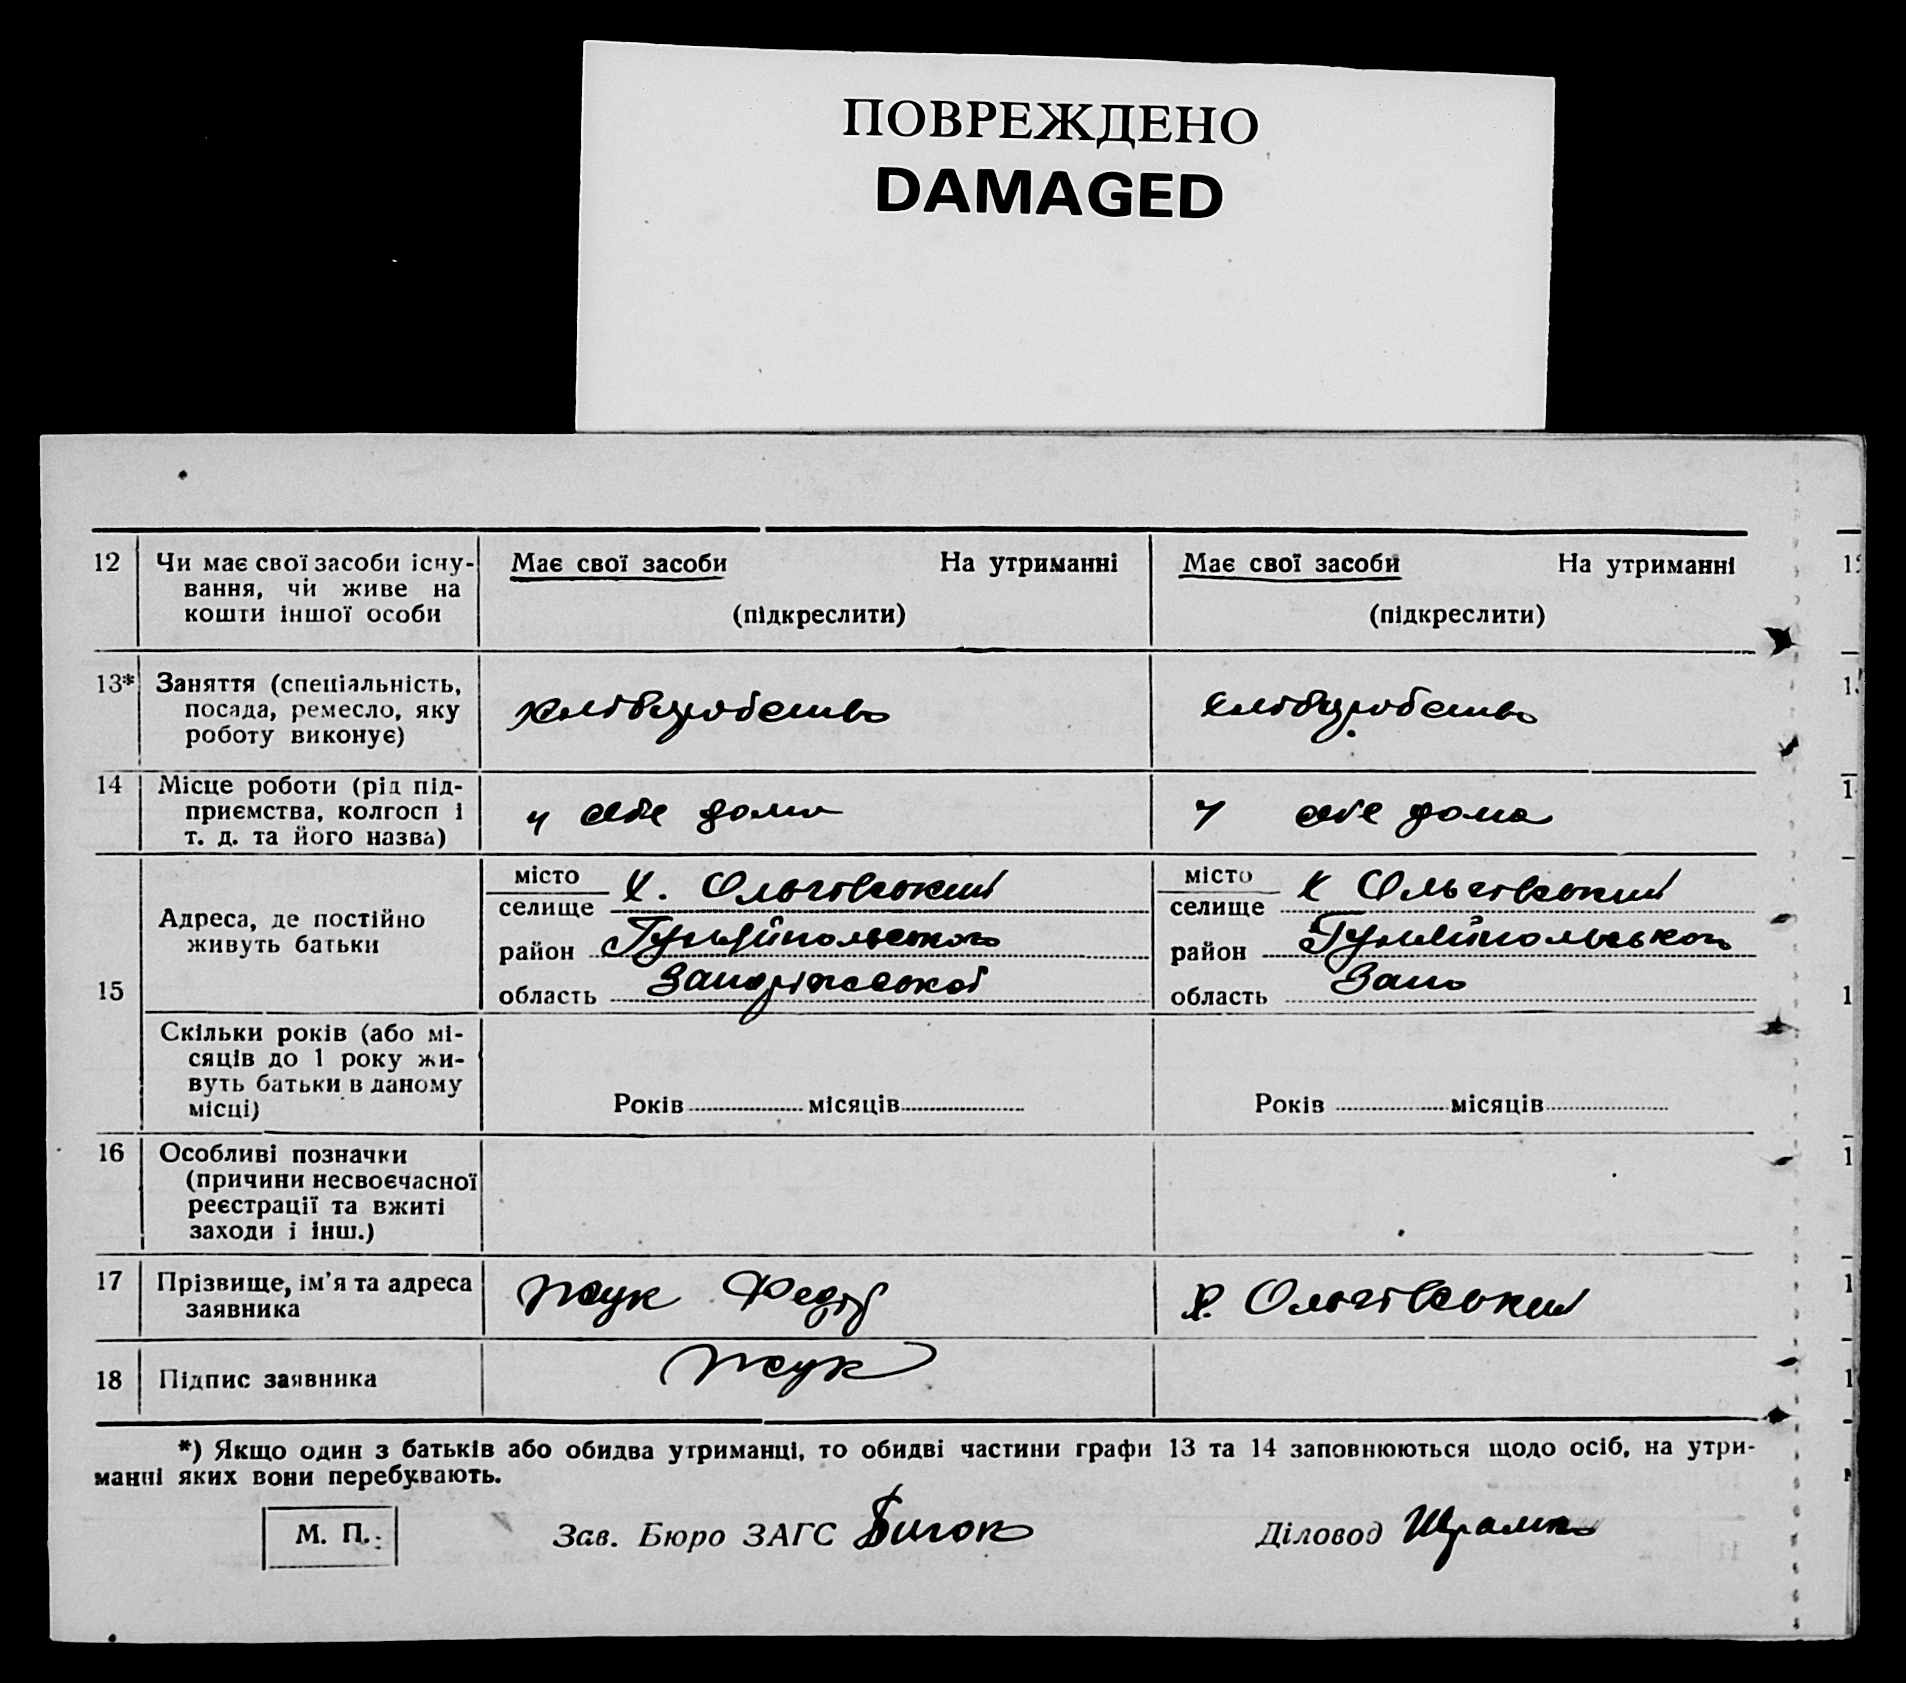 ПОВРЕЖДЕНО
DAMAGED
12 Чи має свої засоби існу-
вання, чи живе на
кошти іншої особи
Має свої засоби На утриманні
(підкреслити)
Має свої засоби На утриманні
(підкреслити)
13* Заняття (спеціальність,
посада, ремесло, яку
роботу виконує)
хліборобство
хліборобство
14 Місце роботи (рід під-
приємства, колгосп і
т. д. та його назва)
у себе дома
у себе дома
15 Адреса, де постійно
живуть батьки
місто
селище х. Ольгівський
район Гуляйпольського
область Запоріжської
місто
селище х Ольгівський
район Гуляйпольського
область Запо
Скільки років (або мі-
сяців до 1 року жи-
вуть батьки в даному
місці)
Років місяців
Років місяців
16 Особливі позначки
(причини несвоєчасної
реєстрації та вжиті
заходи і інш.)
17 Прізвище, ім'я та адреса
заявника
Жук Федір
х. Ольгівський
18 Підпис заявника
Жук
*) Якщо один з батьків або обидва утриманці, то обидві частини графи 13 та 14 заповнюються щодо осіб, на утри-
манні яких вони перебувають.
М. П.
Зав. Бюро ЗАГС
Діловод